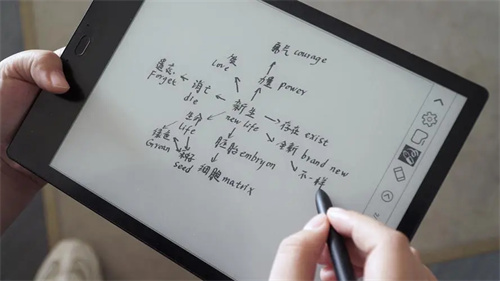 勇气 courage
爱
Love
力量 power
遗忘
Forget
消亡
die
新生
new life
存在 exist
生命
life
全新 brand new
绿色
Groan
种子
seed
胚胎 embryon
细胞 matrix
不一样